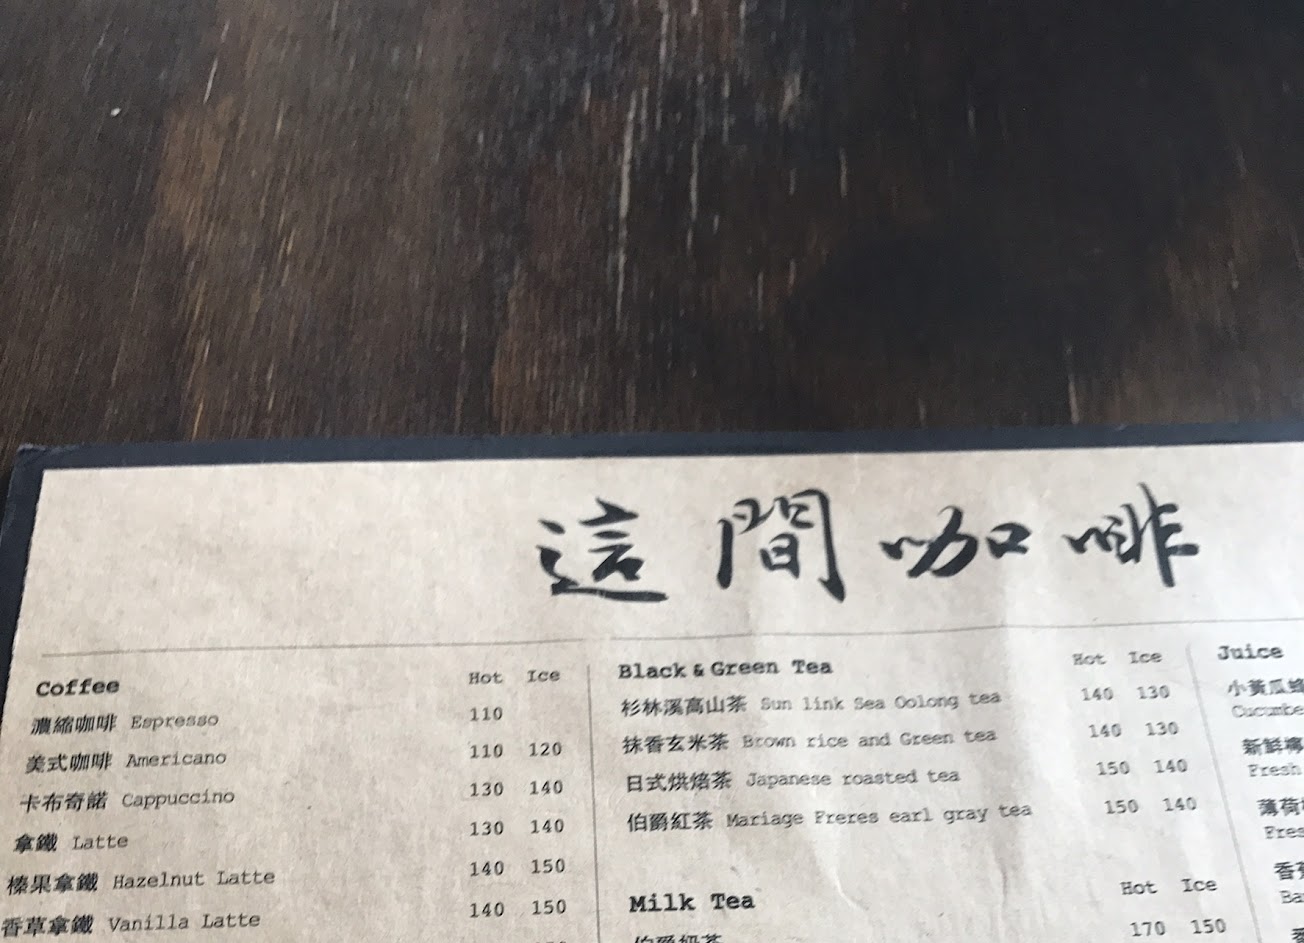 這間咖啡
Coffee Hot Ice
濃縮咖啡 Espresso 110
美式咖啡 Americano 110 120
卡布奇諾 Cappuccino 130 140
拿鐵 Latte 130 140
榛果拿鐵 Hazelnut Latte 140 150
香草拿鐵 Vanilla Latte 140 150
Black & Green Tea Hot Ice
杉林溪高山茶 Sun link Sea Oolong tea 140 130
抹香玄米茶 Brown rice and Green tea 140 130
日式烘焙茶 Japanese roasted tea 150 140
伯爵紅茶 Mariage Freres earl gray tea 150 140
Milk Tea Hot Ice
伯爵奶茶 170 150
Juice
小黃瓜蜂
Cucumbe
新鮮
Fresh
薄荷
Fres
香
Ba